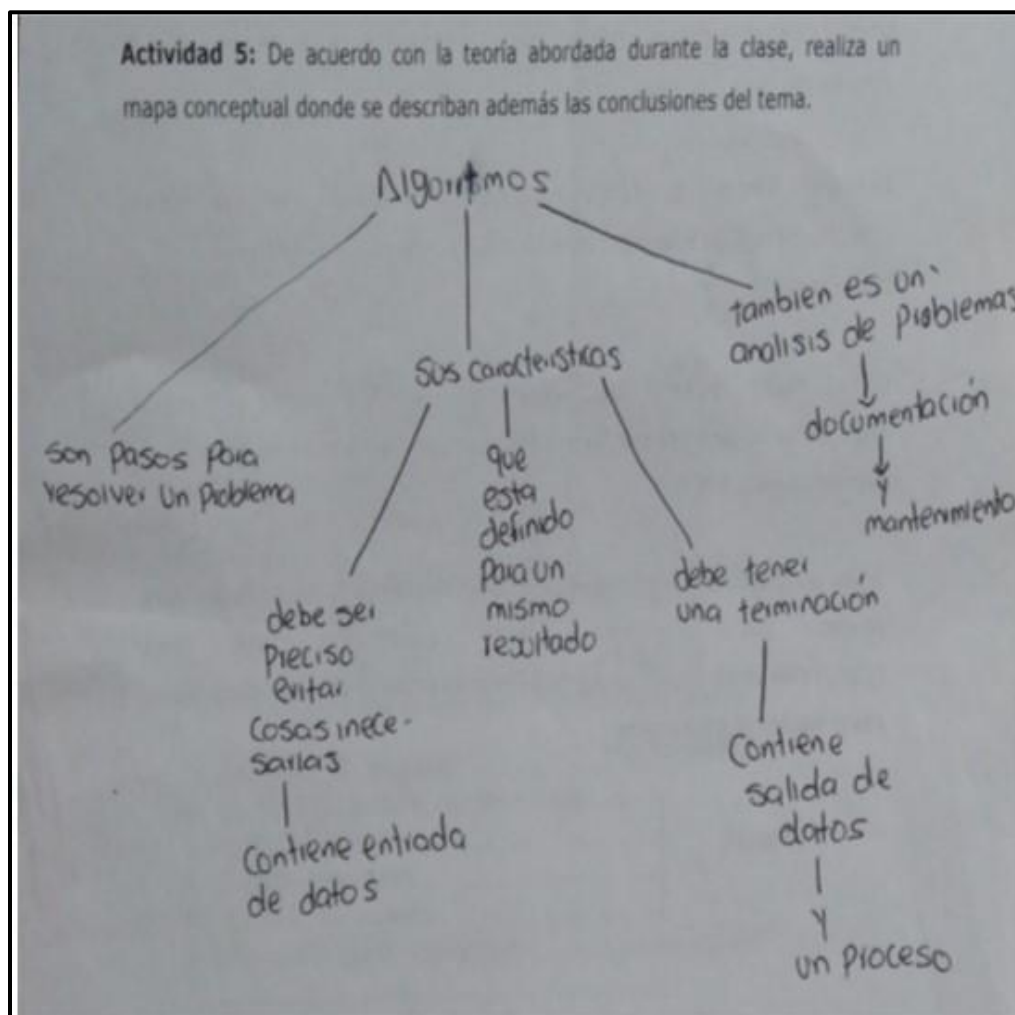 Actividad 5: De acuerdo con la teoría abordada durante la clase, realiza un
mapa conceptual donde se describan además las conclusiones del tema.
Algoritmos
son pasos para
resolver un problema
sus caracteristicas
debe ser
preciso
evitar
cosas inece-
sarias
contiene entrada
de datos
que
esta
definido
para un
mismo
resultado
debe tener
una terminación
Contiene
salida de
datos
Y
un proceso
tambien es un
analisis de problemas
documentación
Y
mantenimiento